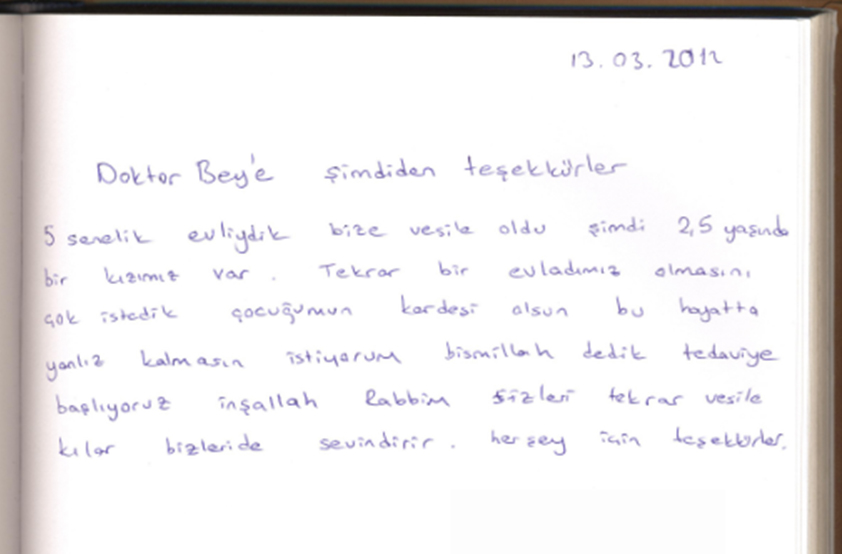 13.03.2012
Doktor Bey'e şimdiden teşekkürler
5 senelik evliydik bize vesile oldu şimdi 2,5 yaşında
bir kızımız var. Tekrar bir evladımız olmasını
çok istedik çocuğumun kardeşi olsun bu hayatta
yanlız kalmasın istiyorum bismillah dedik tedaviye
başlıyoruz inşallah Rabbim sizleri tekrar vesile
kılar bizleride sevindirir. herşey için teşekkürler.